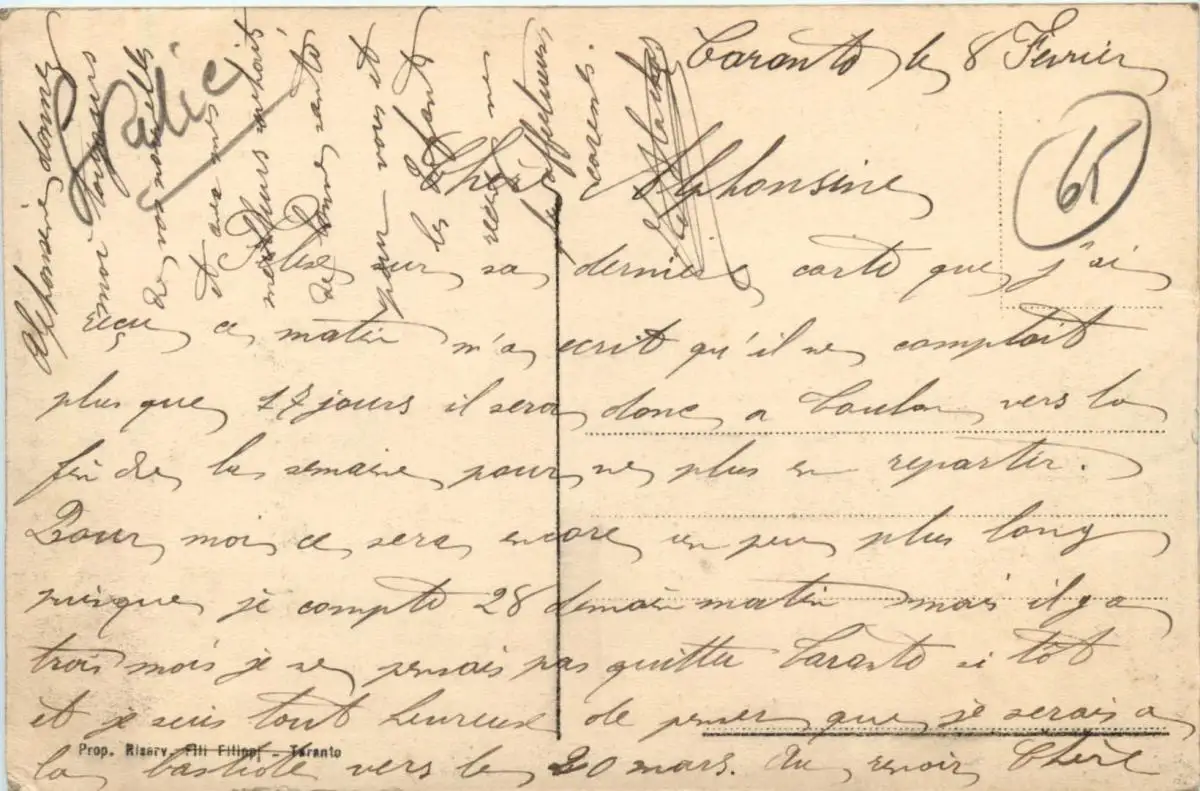 Taranto le 8 Février
65
Italie
Chère Alphonsine
sur sa dernière carte que j'ai
reçu ce matin m'a ecrit qu'il ne comptait
plus que 17 jours il sera donc a Toulon vers la
fin de la semaine pour ne plus en repartir.
Pour moi ce sera encore un peu plus long
puisque je compte 28 demain matin mais il y a
trois mois je ne pensais pas quitter Taranto si tôt
et je suis tout heureuse de penser que je serais a
la bastide vers le 20 mars. Au revoir Chère
Prop. Riserv. Flli Filippi - Taranto
Alphonsine donnez
moi toujours
de vos nouvelles
et avec mes
meilleurs souhaits
de bonne santé
pour vous et
les enfants
recevez mes
affectueux